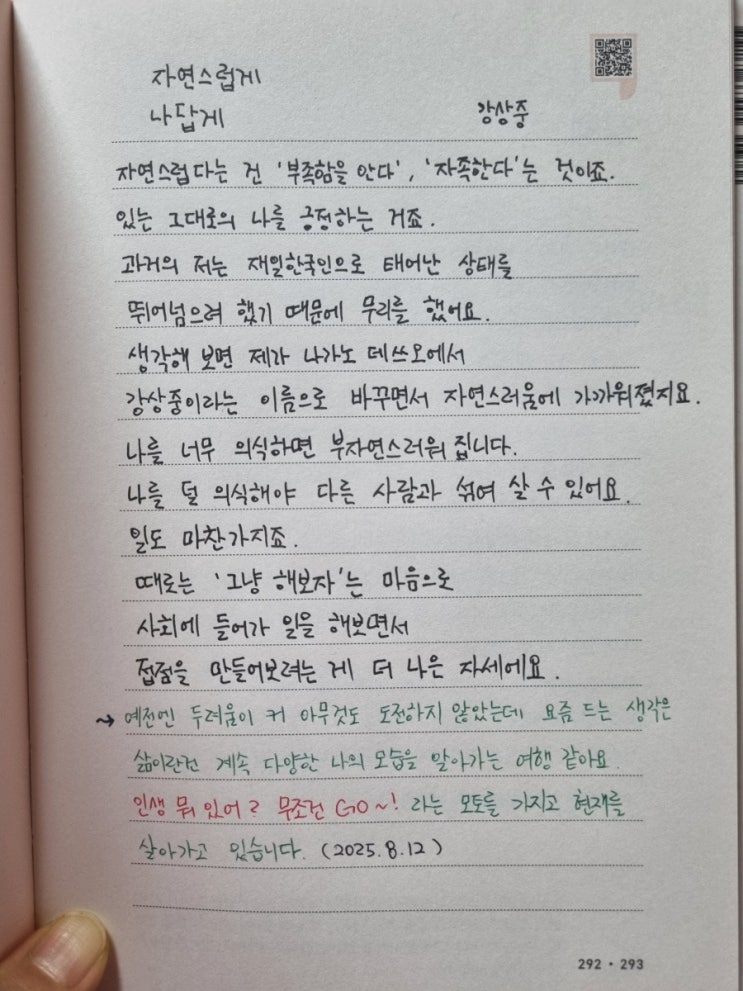 자연스럽게
나답게 강상중
자연스럽다는 건 '부족함을 안다', '자족한다'는 것이죠.
있는 그대로의 나를 긍정하는 거죠.
과거의 저는 재일한국인으로 태어난 상태를
뛰어넘으려 했기 때문에 무리를 했어요.
생각해 보면 제가 나가노 데쓰오에서
강상중이라는 이름으로 바꾸면서 자연스러움에 가까워졌지요.
나를 너무 의식하면 부자연스러워 집니다.
나를 덜 의식해야 다른 사람과 섞여 살 수 있어요.
일도 마찬가지죠.
때로는 '그냥 해보자'는 마음으로
사회에 들어가 일을 해보면서
접점을 만들어보려는 게 더 나은 자세에요.
→ 예전엔 두려움이 커 아무것도 도전하지 않았는데 요즘 드는 생각은
삶이란건 계속 다양한 나의 모습을 알아가는 여행 같아요.
인생 뭐 있어? 무조건 GO~! 라는 모토를 가지고 현재를
살아가고 있습니다. (2025.8.12)
292 • 293